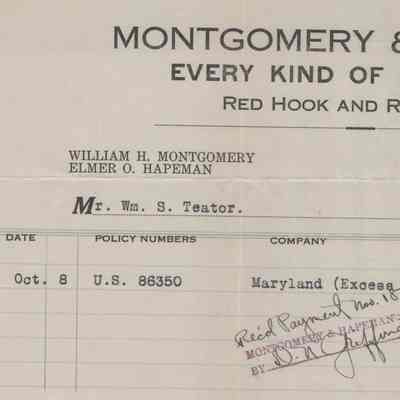 MONTGOMERY &
EVERY KIND OF
RED HOOK AND R
WILLIAM H. MONTGOMERY
ELMER O. HAPEMAN
Mr. Wm. S. Teator.
DATE POLICY NUMBERS COMPANY
Oct. 8 U.S. 86350 Maryland (Excess
Rec'd Payment Nov. 18
MONTGOMERY & HAPEMAN
BY